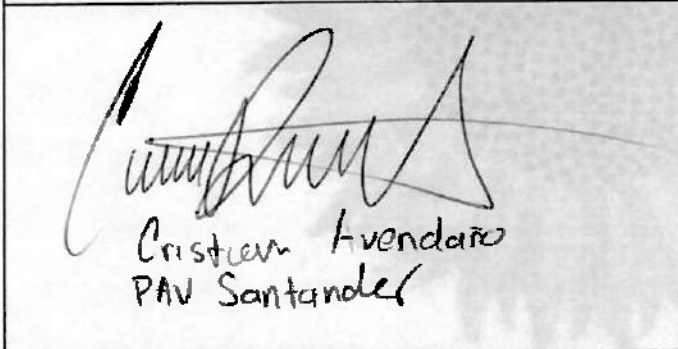 Cristian Avendaño
PAV Santander